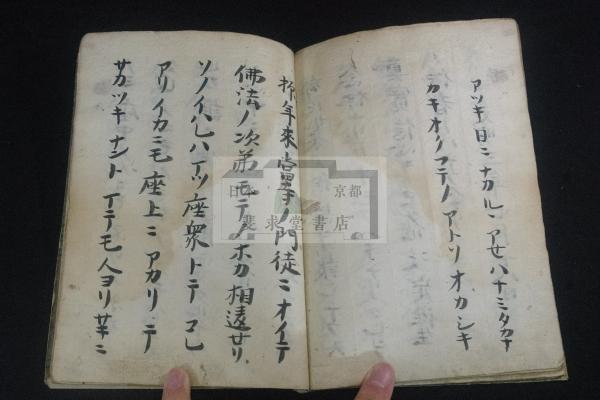 アツキ日ニナカルヽアセハナミタカナ
カキオクフテノアトソオカシキ
抑年來當寺ノ門徒ニオイテ
佛法ノ次第モテノホカ相違セリ
ソノイハレハイツ座衆トテコレ
アリイカニモ座上ニアカリテ
サカツキナントマテモ人ヨリサキニ
日本 京都
悲求堂書店